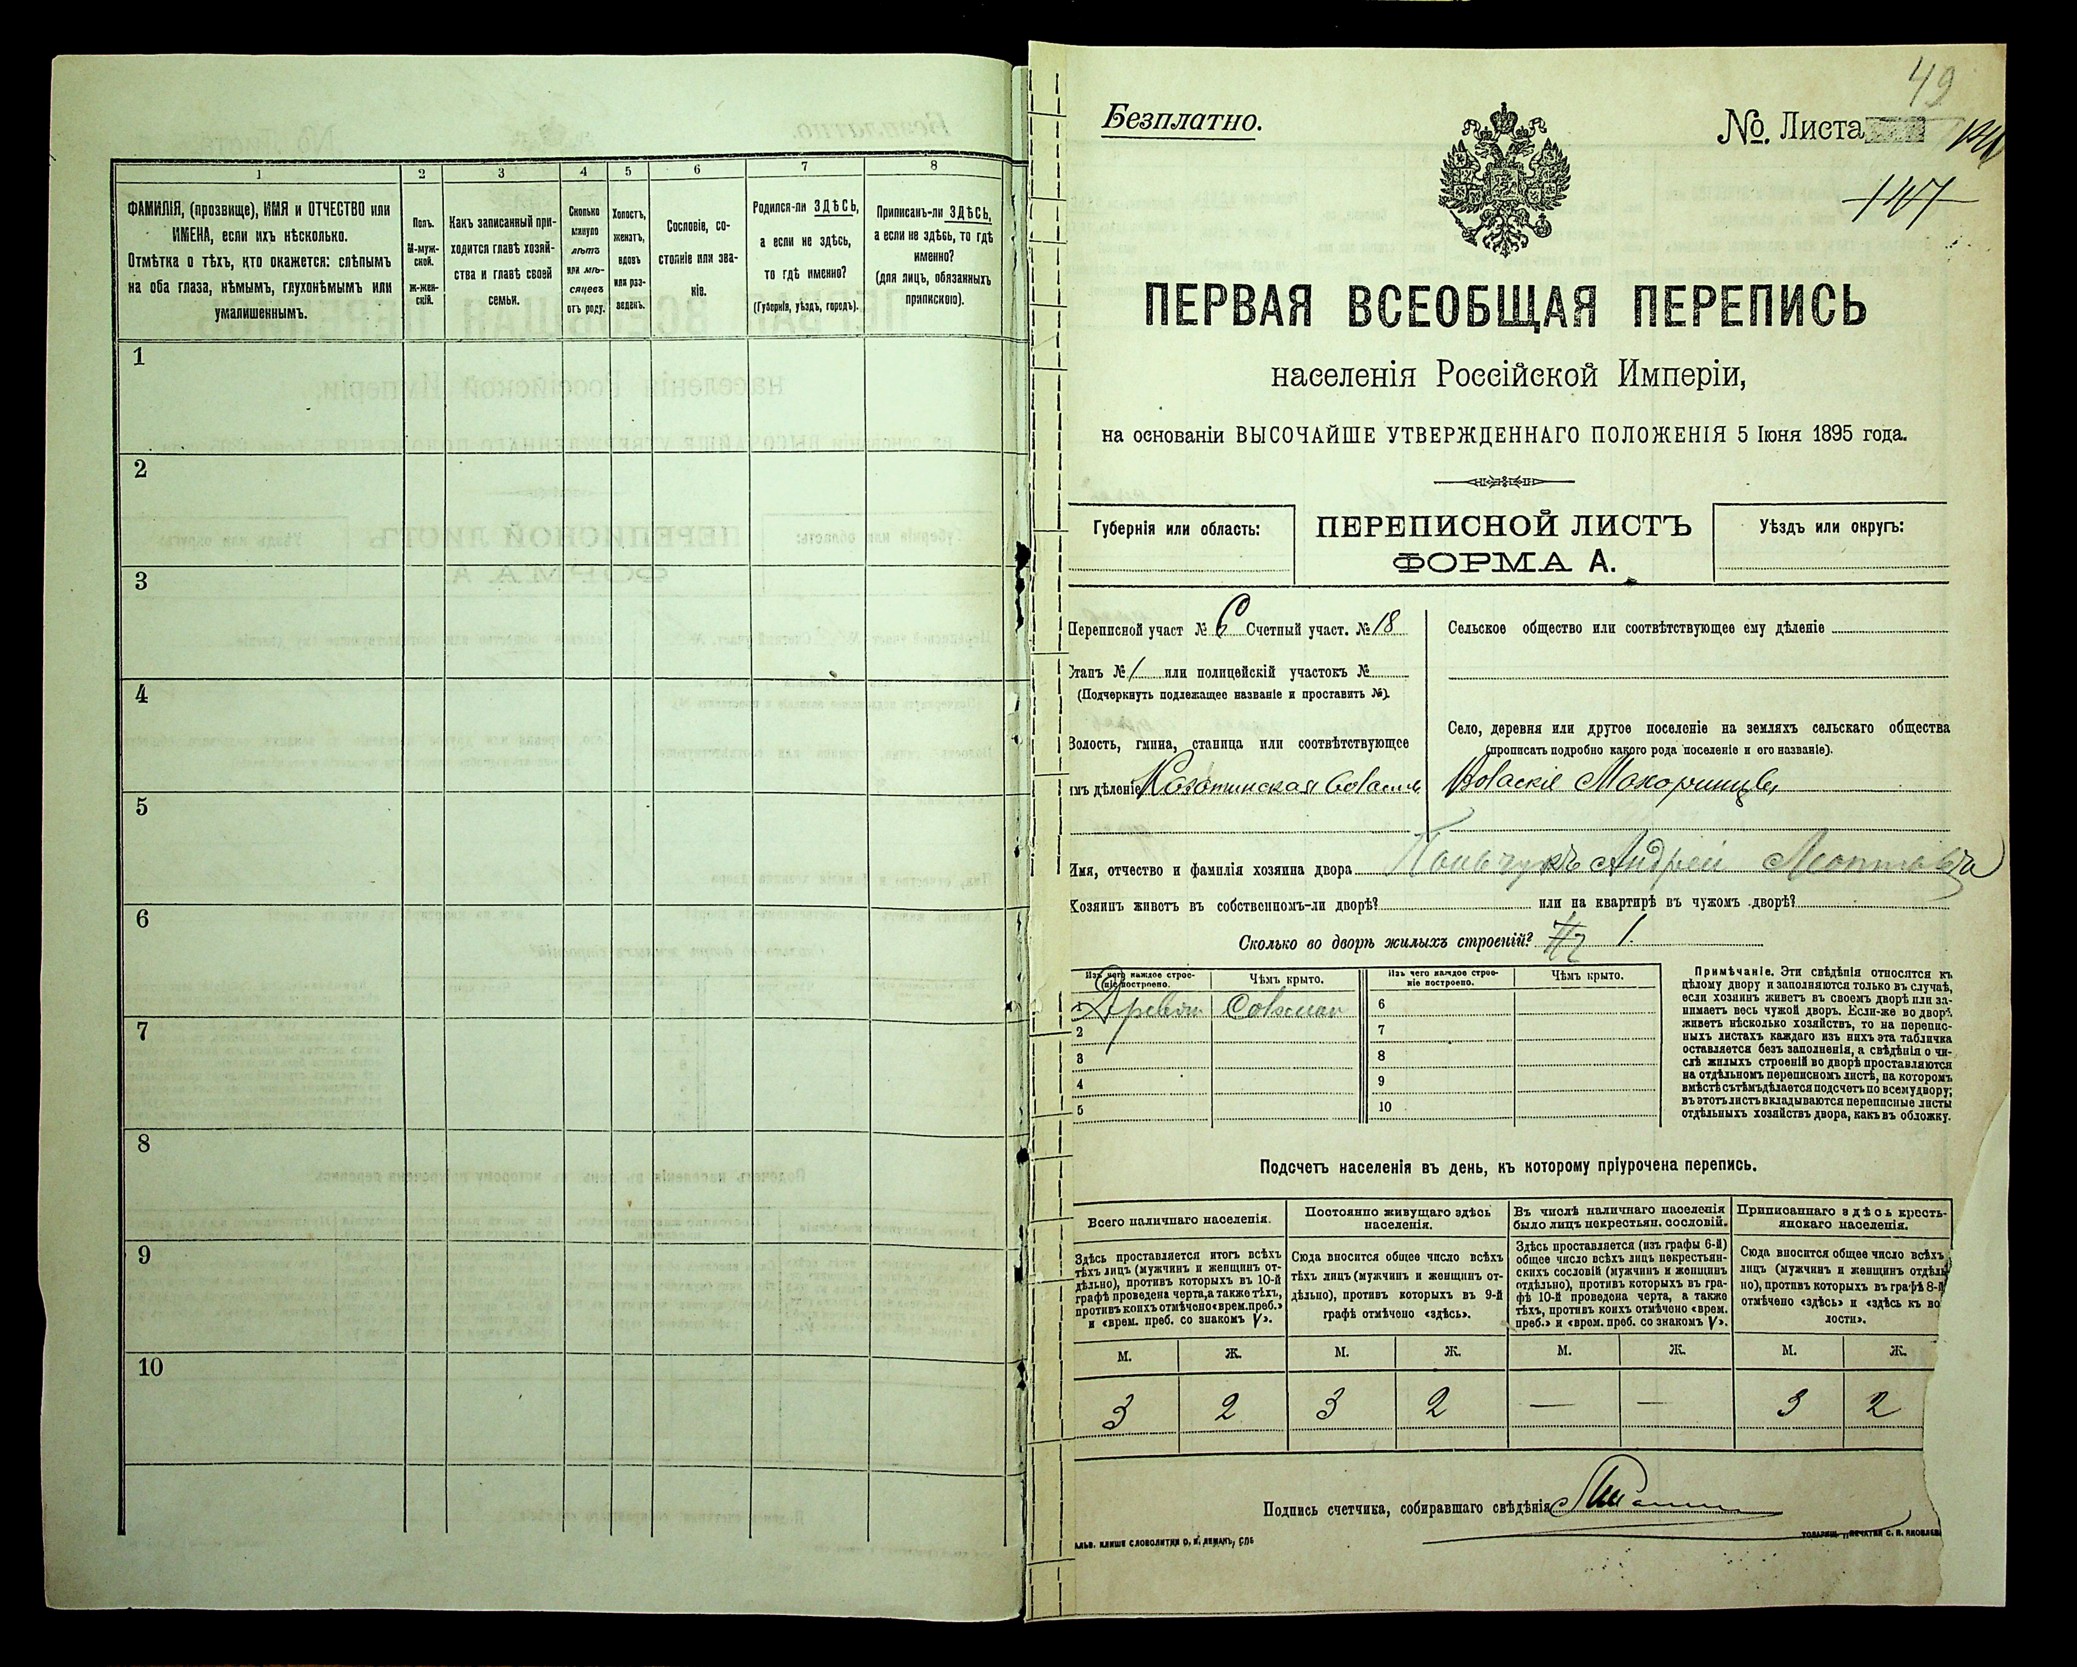 1
2
3
4
5
6
7
8
ФАМИЛІЯ, (прозвище), ИМЯ и ОТЧЕСТВО или
ИМЕНА, если ихъ нѣсколько.
Отмѣтка о тѣхъ, кто окажется: слѣпымъ
на оба глаза, нѣмымъ, глухонѣмымъ или
умалишеннымъ.
Полъ.
М-муж-
ской.
Ж-жен-
скій.
Какъ записанный при-
ходится главѣ хозяй-
ства и главѣ своей
семьи.
Сколько
минуло
лѣтъ
или мѣ-
сяцевъ
отъ роду.
Холостъ,
женатъ,
вдовъ
или раз-
веденъ.
Сословіе, со-
стояніе или зва-
ніе.
Родился-ли ЗДѢСЬ,
а если не здѣсь,
то гдѣ именно?
(Губернія, уѣздъ, городъ).
Приписанъ-ли ЗДѢСЬ,
а если не здѣсь, то гдѣ
именно?
(для лицъ, обязанныхъ
припискою).
1
2
3
4
5
6
7
8
9
10
49
Безплатно.
№. Листа
147
ПЕРВАЯ ВСЕОБЩАЯ ПЕРЕПИСЬ
населенія Россійской Имперіи,
на основаніи ВЫСОЧАЙШЕ УТВЕРЖДЕННАГО ПОЛОЖЕНІЯ 5 Іюня 1895 года.
Губернія или область:
ПЕРЕПИСНОЙ ЛИСТЪ
ФОРМА А.
Уѣздъ или округъ:
Переписной участ № 6 Счетный участ. № 18
Этапъ № 1 или полицейскій участокъ №
(Подчеркнуть подлежащее названіе и проставить №).
Волость, гмина, станица или соотвѣтствующее
имъ дѣленіе волость
Сельское общество или соотвѣтствующее ему дѣленіе
Село, деревня или другое поселеніе на земляхъ сельскаго общества
(прописать подробно какого рода поселеніе и его названіе).
Махоринцы
Имя, отчество и фамилія хозяина двора Андрей
Хозяинъ живетъ въ собственномъ-ли дворѣ? или на квартирѣ въ чужомъ дворѣ?
Сколько во дворѣ жилыхъ строеній? 1.
Изъ чего каждое строе-
ніе построено.
Чѣмъ крыто.
Изъ чего каждое строе-
ніе построено.
Чѣмъ крыто.
1 Деревян Солкмай
2
3
4
5
6
7
8
9
10
Примѣчаніе. Эти свѣдѣнія относятся къ
цѣлому двору и заполняются только въ случаѣ,
если хозяинъ живетъ въ своемъ дворѣ или за-
нимаетъ весь чужой дворъ. Если-же во дворѣ
живетъ нѣсколько хозяйствъ, то на перепис-
ныхъ листахъ каждаго изъ нихъ эта табличка
оставляется безъ заполненія, а свѣдѣнія о чи-
слѣ жилыхъ строеній во дворѣ проставляются
на отдѣльномъ переписномъ листѣ, на которомъ
вмѣстѣ съ тѣмъ дѣлается подсчетъ по всему двору;
въ этотъ листъ вкладываются переписные листы
отдѣльныхъ хозяйствъ двора, какъ въ обложку.
Подсчетъ населенія въ день, къ которому пріурочена перепись.
Всего наличнаго населенія.
Здѣсь проставляется итогъ всѣхъ
тѣхъ лицъ (мужчинъ и женщинъ от-
дѣльно), противъ которыхъ въ 10-й
графѣ проведена черта, а также тѣхъ,
противъ коихъ отмѣчено «врем. преб.»
и «врем. преб. со знакомъ V».
Постоянно живущаго здѣсь
населенія.
Сюда вносится общее число всѣхъ
тѣхъ лицъ (мужчинъ и женщинъ от-
дѣльно), противъ которыхъ въ 9-й
графѣ отмѣчено «здѣсь».
Въ числѣ наличнаго населенія
было лицъ некрестьян. сословій.
Здѣсь проставляется (изъ графы 6-й)
общее число всѣхъ лицъ некрестьян-
скихъ сословій (мужчинъ и женщинъ
отдѣльно), противъ которыхъ въ гра-
фѣ 10-й проведена черта, а также
тѣхъ, противъ коихъ отмѣчено «врем.
преб.» и «врем. преб. со знакомъ V».
Приписаннаго здѣсь кресть-
янскаго населенія.
Сюда вносится общее число всѣхъ
лицъ (мужчинъ и женщинъ отдѣль
но), противъ которыхъ въ графѣ 8-й
отмѣчено «здѣсь» и «здѣсь къ во
лости».
М. Ж. М. Ж. М. Ж. М. Ж.
3 2 3 2 — — 3 2
Подпись счетчика, собиравшаго свѣдѣнія
АЛЬВ. КЛИШЕ СЛОВОЛИТНИ О. И. ЛЕМАНЪ, СПБ
ТОВАРИЩ. „ПЕЧАТНИ С. П. ЯКОВЛЕВА